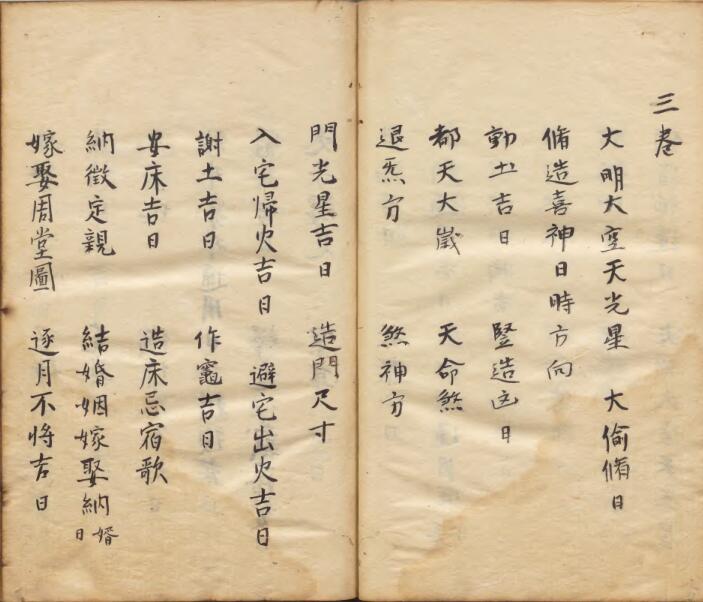 三卷
大明大空天光星　大偷脩日
脩造喜神日時方向
動土吉日　豎造凶日
都天大嵗　天命煞
退炁方　煞神方
門光星吉日　造門尺寸
入宅歸火吉日　避宅出火吉日
謝土吉日　作竈吉日
安床吉日　造床忌宿歌
納徵定親　結婚姻嫁娶納婿日
嫁娶周堂圖　逐月不將吉日